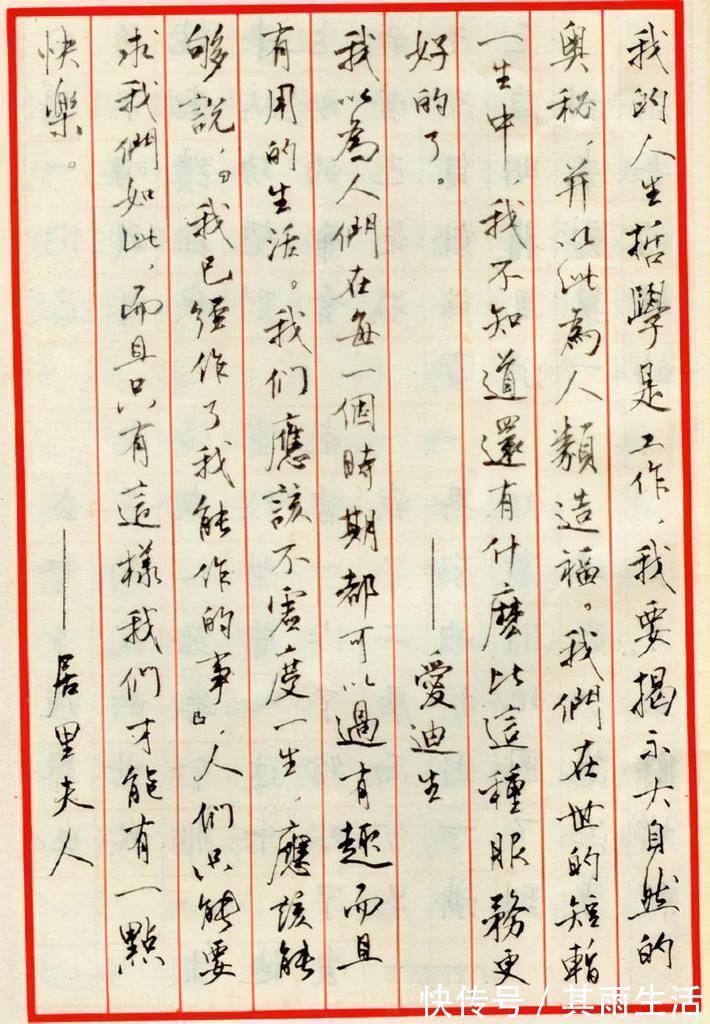 我的人生哲學是工作，我要揭示大自然的
奥秘，并以此為人類造福。我們在世的短暫
一生中，我不知道還有什麽比這種服務更
好的了。
——愛迪生
我以為人們在每一個時期都可以過有趣而且
有用的生活。我们應該不虚度一生，應該能
够説，『我已經作了我能作的事』，人们只能要
求我們如此，而且只有這樣我们才能有一點
快樂。
——居里夫人
快传号 / 其雨生活